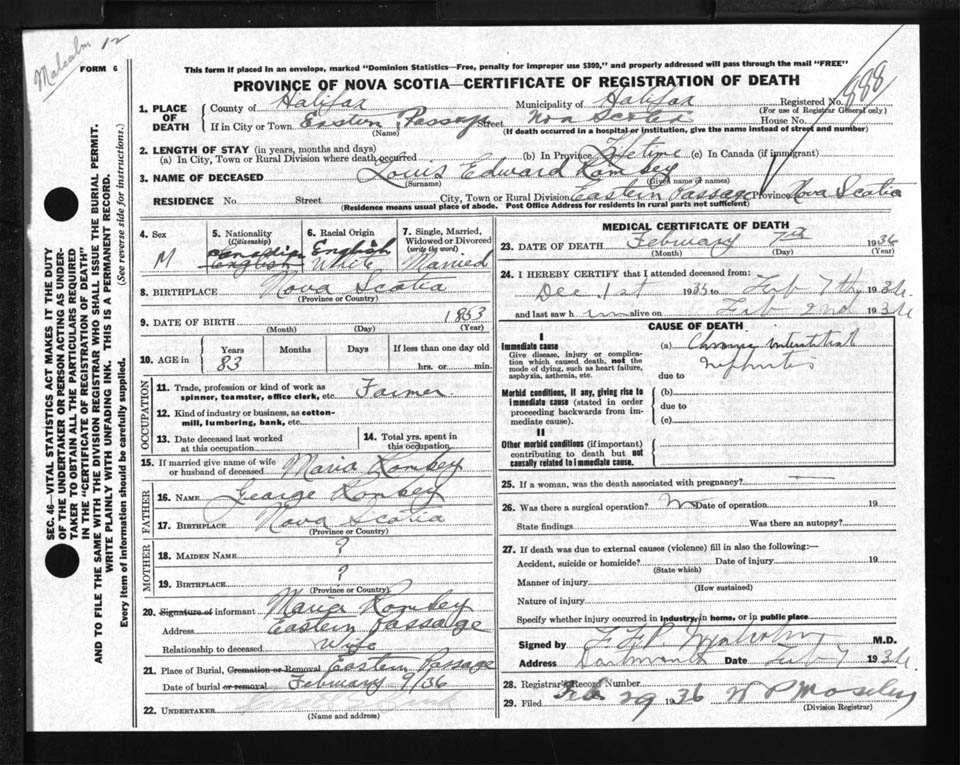 Malcolm 12
FORM 6
This form if placed in an envelope, marked "Dominion Statistics—Free, penalty for improper use $300," and properly addressed will pass through the mail "FREE"
PROVINCE OF NOVA SCOTIA—CERTIFICATE OF REGISTRATION OF DEATH
888
1. PLACE OF DEATH County of Halifax Municipality of Halifax Registered No.
(For use of Registrar General only)
If in City or Town Eastern Passage Street Nova Scotia House No.
(Name) (If death occurred in a hospital or institution, give the name instead of street and number)
2. LENGTH OF STAY (in years, months and days)
(a) In City, Town or Rural Division where death occurred (b) In Province Lifetime (c) In Canada (if immigrant)
3. NAME OF DECEASED Louis Edward Romkey
(Surname) (Given name or names)
RESIDENCE No. Street City, Town or Rural Division Eastern Passage Province Nova Scotia
(Residence means usual place of abode. Post Office Address for residents in rural parts not sufficient)
4. Sex M
5. Nationality (Citizenship) Canadian English
6. Racial Origin English White
7. Single, Married, Widowed or Divorced (write the word) Married
8. BIRTHPLACE Nova Scotia
(Province or Country)
9. DATE OF BIRTH 1853
(Month) (Day) (Year)
10. AGE in Years Months Days If less than one day old
83 hrs. or min.
OCCUPATION
11. Trade, profession or kind of work as spinner, teamster, office clerk, etc. Farmer
12. Kind of industry or business, as cotton-mill, lumbering, bank, etc.
13. Date deceased last worked at this occupation
14. Total yrs. spent in this occupation
15. If married give name of wife or husband of deceased Maria Romkey
FATHER
16. NAME George Romkey
17. BIRTHPLACE Nova Scotia
(Province or Country)
MOTHER
18. MAIDEN NAME ?
19. BIRTHPLACE ?
(Province or Country)
20. Signature of informant Maria Romkey
Address Eastern Passage
Relationship to deceased Wife
21. Place of Burial, Cremation or Removal Eastern Passage
Date of burial or removal February 9/36
22. UNDERTAKER
(Name and address)
MEDICAL CERTIFICATE OF DEATH
23. DATE OF DEATH February 7th 1936
(Month) (Day) (Year)
24. I HEREBY CERTIFY that I attended deceased from:
Dec 1st 1935 to Feb 7th 1936
and last saw him alive on Feb 2nd 1936
CAUSE OF DEATH
I
Immediate cause
Give disease, injury or complication which caused death, not the mode of dying, such as heart failure, asphyxia, asthenia, etc.
(a) Chronic Interstitial
Nephritis
due to
Morbid conditions, if any, giving rise to immediate cause (stated in order proceeding backwards from immediate cause).
(b)
due to
(c)
II
Other morbid conditions (if important) contributing to death but not causally related to immediate cause.
25. If a woman, was the death associated with pregnancy? —
26. Was there a surgical operation? No Date of operation 19
State findings Was there an autopsy?
27. If death was due to external causes (violence) fill in also the following:—
Accident, suicide or homicide? Date of injury 19
(State which)
Manner of injury
(How sustained)
Nature of injury
Specify whether injury occurred in industry, in home, or in public place
Signed by M.D.
Address Dartmouth Date Feb 7 1936
28. Registrar's Record Number
29. Filed Feb 29 1936 W P Moseley
(Division Registrar)
SEC. 46—VITAL STATISTICS ACT MAKES IT THE DUTY
OF THE UNDERTAKER OR PERSON ACTING AS UNDER-
TAKER TO OBTAIN ALL THE PARTICULARS REQUIRED
IN THE "CERTIFICATE OF REGISTRATION OF DEATH"
AND TO FILE THE SAME WITH THE DIVISION REGISTRAR WHO SHALL ISSUE THE BURIAL PERMIT.
WRITE PLAINLY WITH UNFADING INK. THIS IS A PERMANENT RECORD.
Every item of information should be carefully supplied. (See reverse side for instructions.)